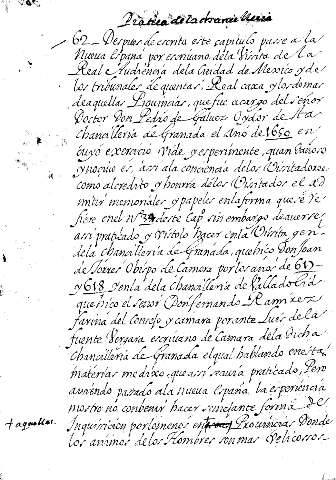 Pratica de la chancilleria
62 – Despues de escrito este capitulo passe a la
Nueva España por escriuano de la Visita de la
Real Audiençia de la Ciudad de Mexico y de
los tribunales de quentas, Real caxa y los demas
de aquellas Prouincias, que fue a cargo del señor
Doctor Don Pedro de Galuez Oydor de sta
Chancilleria de Granada el Año de 1650 en
cuyo exercicio vide, y esperimente, quan dañoso
y nociuo es, assi a la conciencia de los Visitadores
como al credito, y honrra de los Visitados el ad
mitir memoriales, y papeles en la forma que se re
fiere en el n.º 34 deste Cap.º sin embargo de auerse
assi praticado, y vistolo hacer en la Visita gen.l
de la Chancilleria de Granada, que hico Don Joan
de Torres Obispo de Çamora por los años de 617
y 618 y en la de la Chancilleria de Valladolid
que hico el señor Don fernando Ramirez
fariña del Consejo y camara por ante Luis de la
fuente Vergara escriuano de Camara de la dicha
Chancilleria de Granada el qual hablando en estas
materias me dixo, que assi se auia praticado, Pero
auiendo passado a la nueva España, la esperiencia
mostro no conbenir hacer semejante forma de
Inquisicion por lo menos en Prouincias, Donde
+ aquellas.
los animos de los Hombres son mas Velicossos.